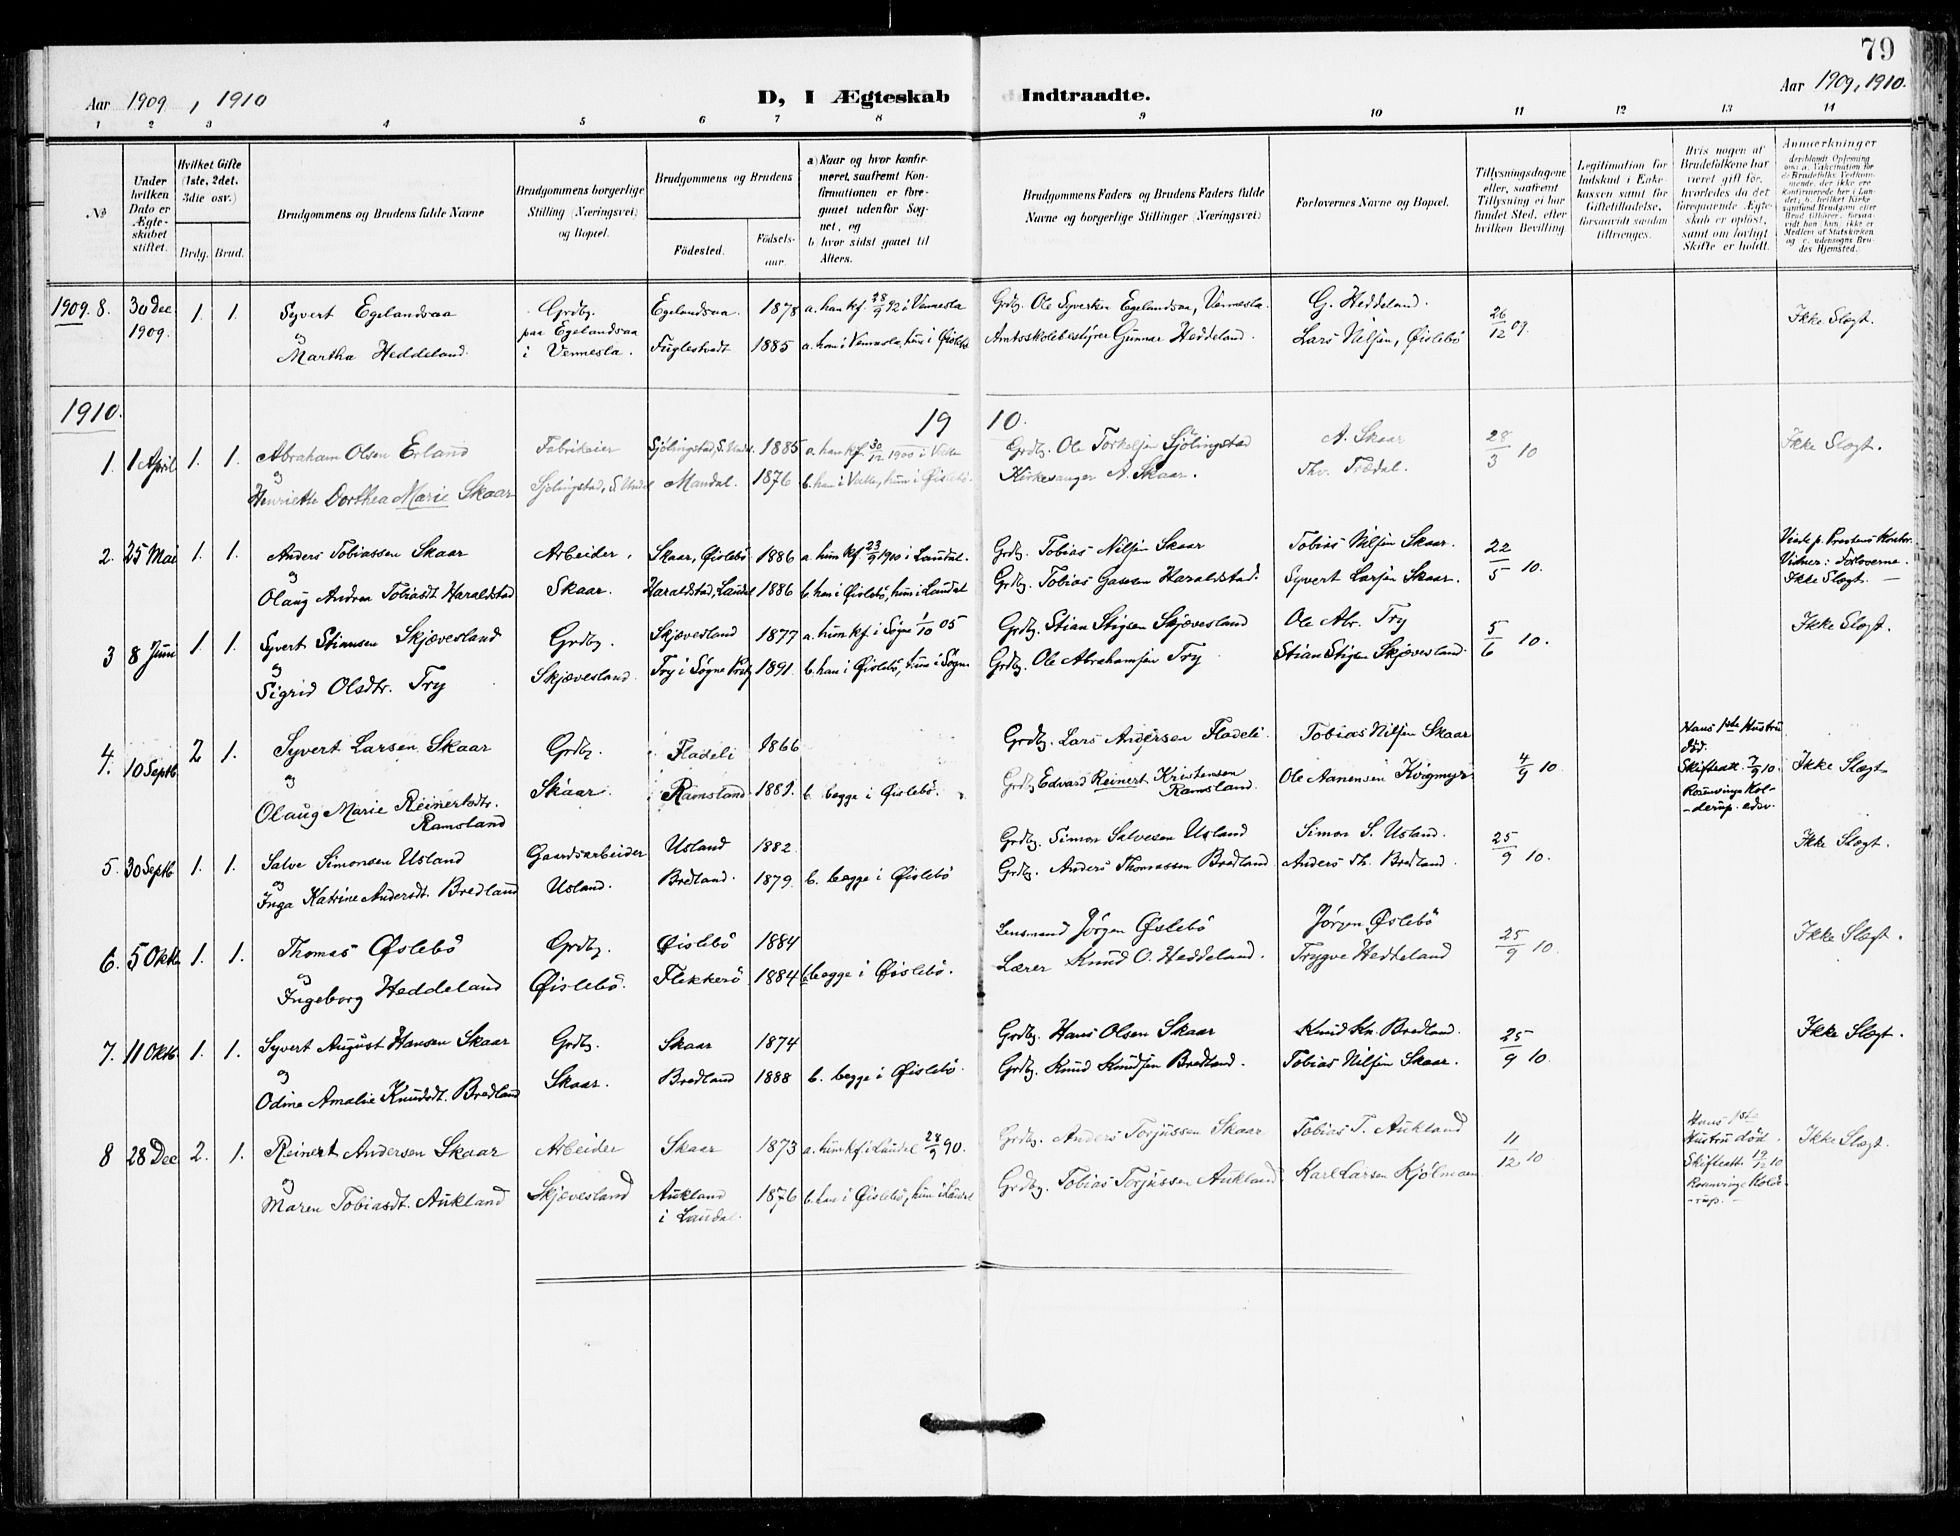 79
Aar 1909, 1910
D, I Ægteskab Indtraadte.
Aar 1909, 1910.
1 2 3 4 5 6 7 8 9 10 11 12 13 14
No
Under hvilken Dato er Ægteskabet stiftet.
Hvilket Gifte (1ste, 2det, 3die osv.)
Brdg. Brud.
Brudgommens og Brudens fulde Navne
Brudgommens borgerlige Stilling (Næringsvei) og Bopæl.
Brudgommens og Brudens
Födested. Födselsaar.
a) Naar og hvor konfirmeret, saafremt Konfirmationen er foregaaet udenfor Sognet, og
b hvor sidst gaaet til Alters.
Brudgommens Faders og Brudens Faders fulde Navne og borgerlige Stillinger (Næringsvei)
Forlovernes Navne og Bopæl.
Tillysningsdagene eller, saafremt Tillysning ei har fundet Sted, efter hvilken Bevilling.
Legitimation for Indskud i Enkekassen samt for Giftetilladelse, forsaavidt saadan tiltrænges.
Hvis nogen af Brudefolkene har været gift för, hvorledes da det foregaaende Ægteskab er oplöst, samt om lovligt Skifte er holdt.
Anmærkninger
1909. 8. 30 Dec 1909. 1. 1. Syvert Egelandsaa
og
Martha Heddeland.
Grdbr. paa Egelandsaa i Vennesla.
Egelandsaa 1878
Fuglestvedt 1885
a. han kf. 28/9 92 i Vennesla
a. han i Vennesla, hun i Øislebö
Grdbr. Ole Syvertsen Egelandsaa, Vennesla.
Amtsskolebestyrer Gunnar Heddeland.
G. Heddeland.
Lars Nilsen, Øislebö
26/12 09.
Ikke Slegt.
1910.
1910.
1. 1 April 1. 1. Abraham Olsen Erland
og
Henriette Dorthea Marie Skaar
Fabrikeier
Sjölingstad, S. Undal
Sjölingstad, S. Undal 1885
Mandal. 1876
a. han kf. 30/12 1900 i Valle
b. han i Valle, hun i Øislebö.
Grdbr. Ole Torkelsen Sjölingstad
Kirkesanger A. Skaar.
A. Skaar
Thv. Trædal.
28/3 10
Ikke Slegt.
2. 25 Mai 1. 1. Anders Tobiassen Skaar
og
Olaug Andrea Tobiasdt. Haraldstad
Arbeider.
Skaar.
Skaar, Øislebö 1886
Haraldstad, Laudal 1886
a. hun kf. 23/9 1900 i Laudal.
b. han i Øislebö, hun i Laudal
Grdbr. Tobias Nilsen Skaar
Grdbr. Tobias Gassen Haraldstad.
Tobias Nilsen Skaar.
Syvert Larsen Skaar.
22/5 10.
Viede p. Prestens Kontor.
Vidner: Forloverne.
Ikke Slegt.
3 8 Juni 1. 1. Syvert Stiansen Skjævesland
og
Sigrid Olsdtr. Try
Grdbr.
Skjævesland.
Skjævesland 1877
Try i Søgne Prstg 1891
a. hun kf. i Søgne 1/10 05
b. han i Øislebö, hun i Søgne
Grdbr. Stian Stigsen Skjævesland
Grdbr. Ole Abrahamsen Try
Ole Abr. Try
Stian Stigsen Skjævesland.
5/6 10.
Ikke Slegt.
4. 10 Septb. 2 1. Syvert Larsen Skaar
og
Olaug Marie Reinertsdtr. Ramsland
Grdbr.
Skaar.
Fladeli 1866
Ramsland 1881.
b. begge i Øislebö.
Grdbr. Lars Andersen Fladeli.
Grdbr. Edvard Reinert Kristensen Ramsland.
Tobias Nilsen Skaar
Ole Aanensen Kvigmyr
4/9 10.
Hans 1ste Hustru död.
Skifteatt. 7/9 10.
Rosenvinge Kolderup. edsv.
Ikke Slegt
5. 30 Septb 1. 1. Salve Simonsen Usland
og
Inga Katrine Andersdt. Bredland
Gaardsarbeider
Usland.
Usland 1882
Bredland. 1879.
b. begge i Øislebö
Grdbr. Simon Salvesen Usland
Grdbr. Anders Thomassen Bredland
Simon S. Usland.
Anders Th. Bredland.
25/9 10.
Ikke Slegt.
6. 5 Oktb 1. 1. Thomas Øislebö
og
Ingeborg Heddeland
Grdbr.
Øislebö.
Øislebö 1884
Flekkerö 1884
b. begge i Øislebö.
Lensmand Jörgen Øislebö
Lærer Knud O. Heddeland.
Jörgen Øislebö
Trygve Heddeland
25/9 10.
Ikke Slegt.
7. 11 Oktb. 1. 1. Syvert August Hansen Skaar
og
Odine Amalie Knudsdt. Bredland
Grdbr.
Skaar.
Skaar 1874
Bredland 1888
b. begge i Øislebö.
Grdbr. Hans Olsen Skaar
Grdbr. Knud Knudsen Bredland.
Knud Kn. Bredland.
Tobias Nilsen Skaar.
25/9 10.
Ikke Slegt.
8 28 Dec 2. 1. Reinert Andersen Skaar
og
Maren Tobiasdt. Aukland
Arbeider
Skjævesland
Skaar 1873
Aukland i Laudal. 1876
a. hun kf. i Laudal 28/9 90.
b. han i Øislebö, hun i Laudal
Grdbr. Anders Torjussen Skaar
Grdbr. Tobias Torjussen Aukland
Tobias T. Aukland
Karl Larsen Kjölmoen
11/12 10
Hans 1ste Hustru död.
Skifteatt. 19/12 10
Rosenvinge Kolderup.
Ikke Slegt.